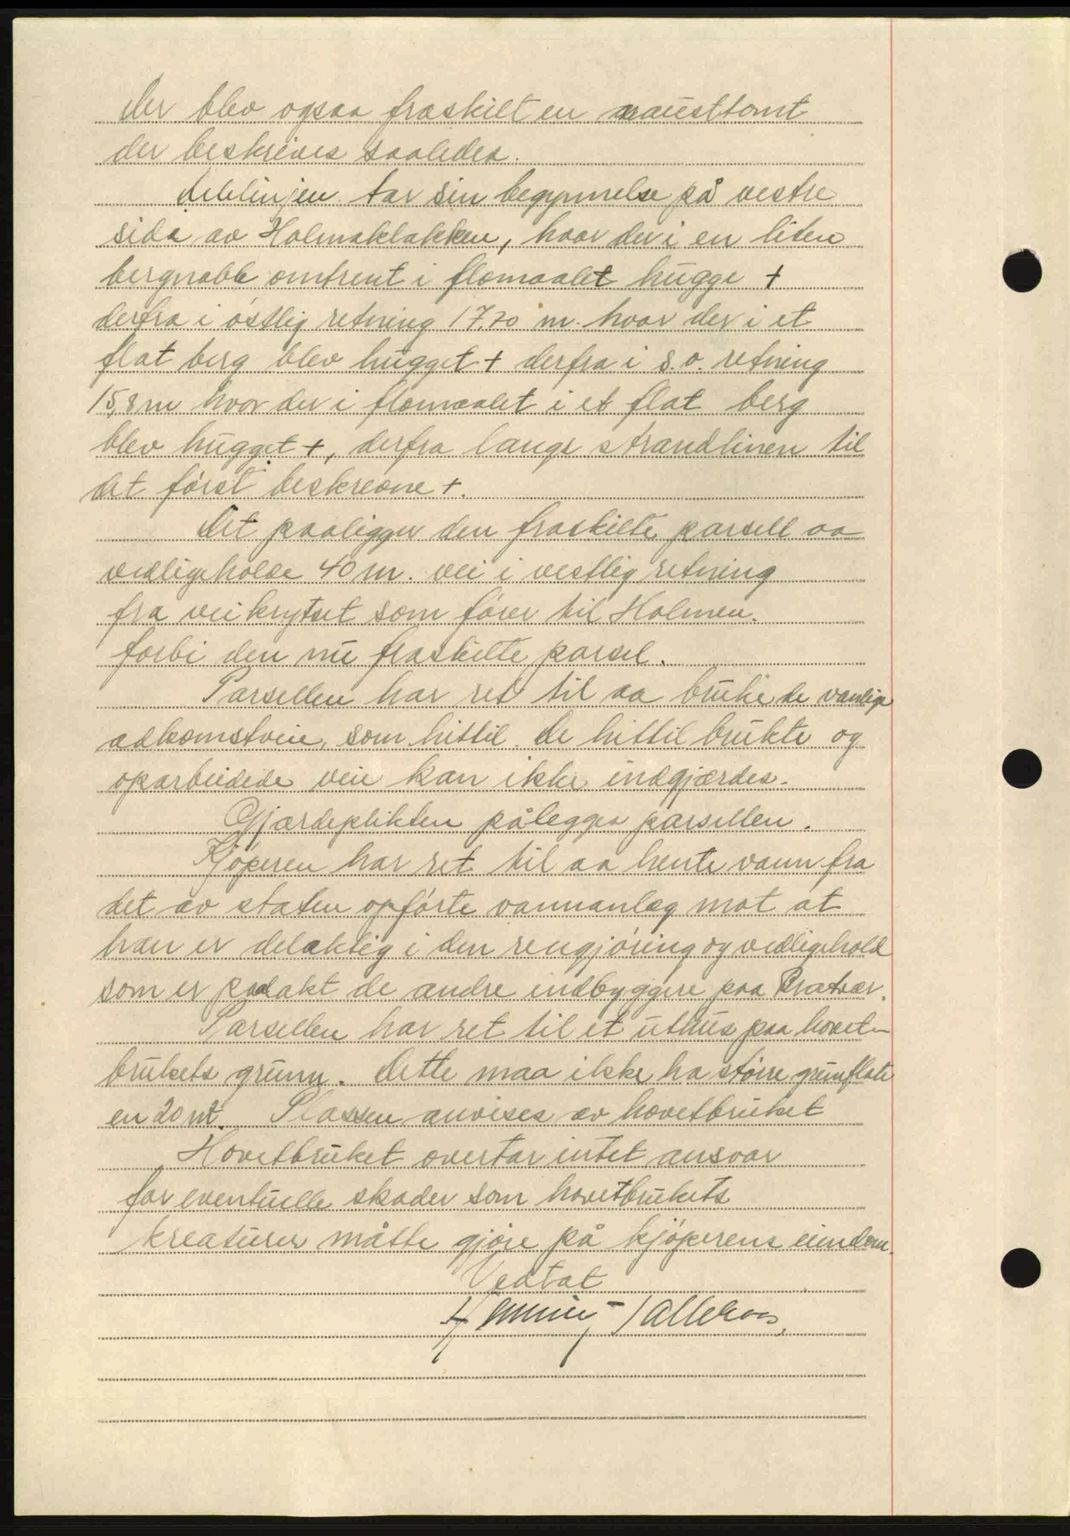 der blev ogsaa fraskilt en nausttomt
der beskrives saaledea.
Delelinjen tar sin begynnelse på vestre
side av Holmaklakken, hvor der i en liten
bergnabb omtrent i flomaalet hugge +
derfra i östlig retning 17.70 m. hvor der i et
flat berg blev hugget + derfra i s.o. retning
15,8 m hvor der i flomaalet i et flat berg
blev hugget +, derfra langs strandlinen til
det först beskrevne +.
Det paaligger den fraskilte parsell aa
vedligeholde 40 m. vei i vestlig retning
fra veikrytset som förer til Holmen.
forbi den nu fraskilte parsel.
Parsellen har ret til aa bruke de vanlige
adkomstveie, som hittil. de hittil brukte og
oparbeidede veie kan ikke indgjærdes.
Gjærdeplikten pålegges parsellen.
Kjöperen har ret til aa hente vann fra
det av staten opförte vannanlæg mot at
han er delaktig i den rengjöring og vedligehold
som er paalakt de andre indbyggere paa
Parsellen har ret til et uthus paa hovet-
brukets grunn. dette maa ikke ha större grunflate
en 20 m². Plassen anvises av hovetbruket
Hovetbruket overtar intet ansvar
for eventuelle skader som hovetbrukets
kreaturer måtte gjöre på kjöperens eiendom.
Vedtat
Henning